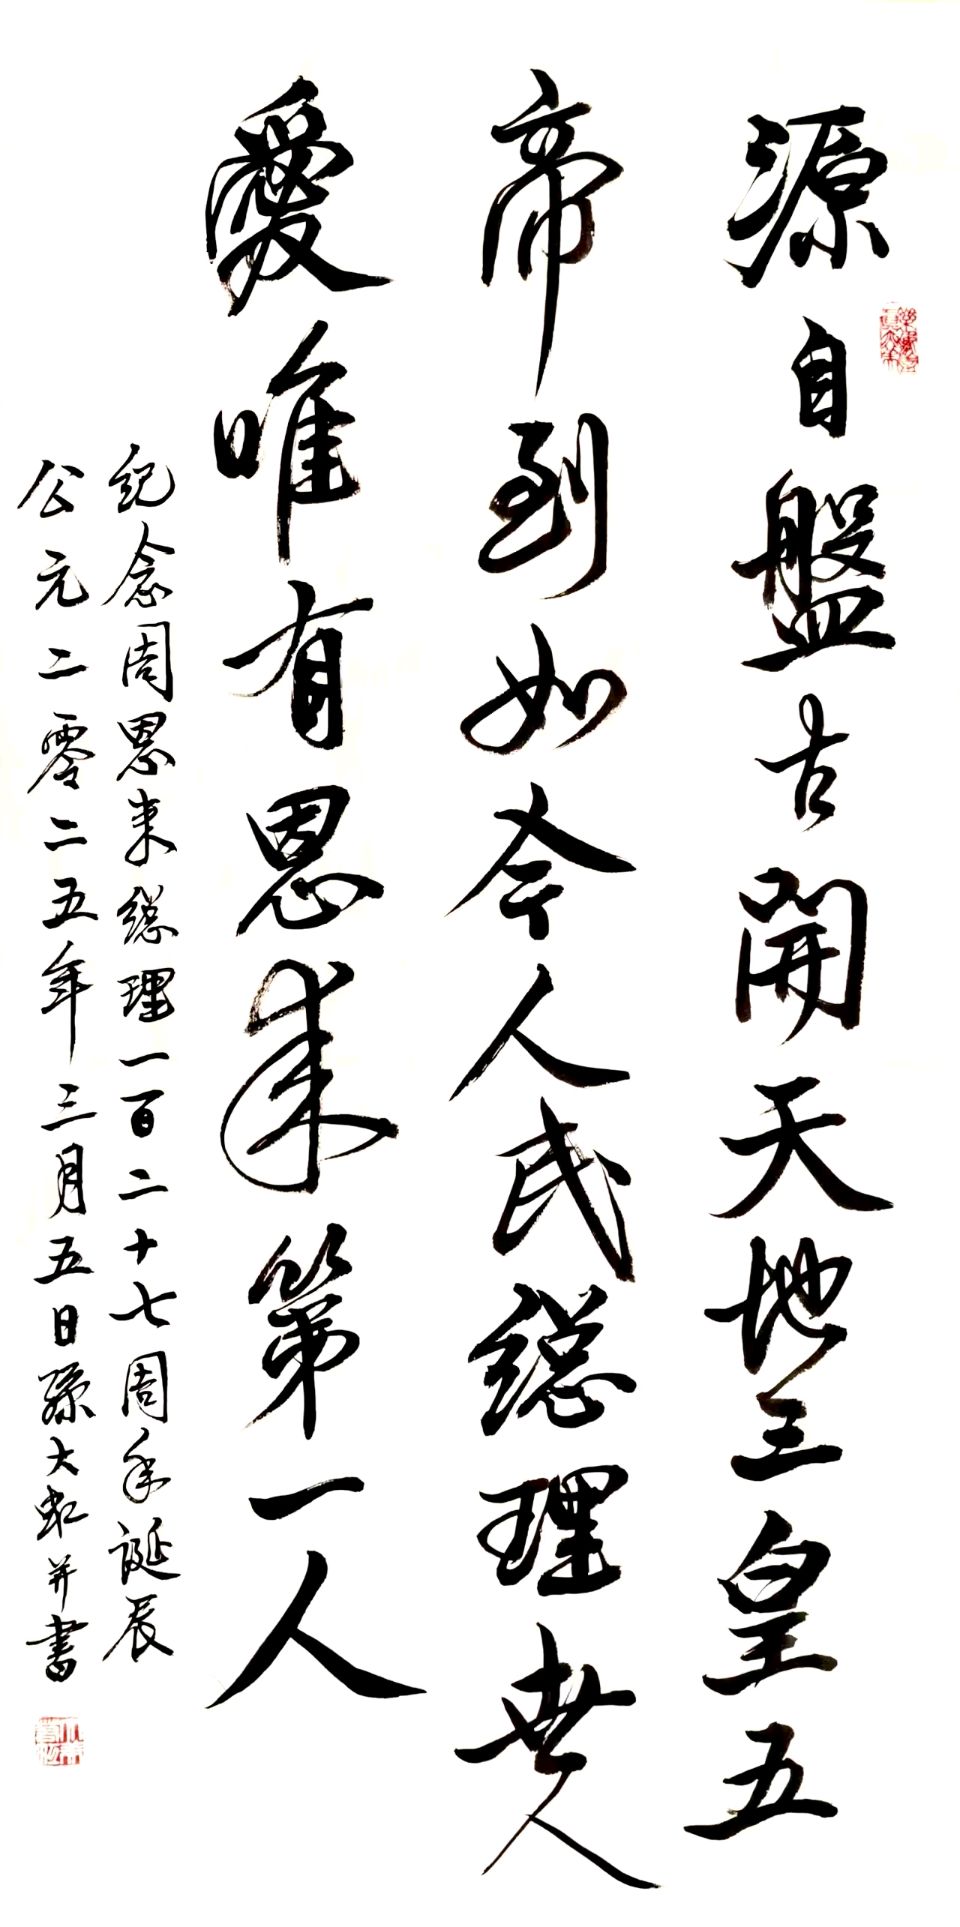 源自盤古開天地三皇五
帝到如今人民總理世人
愛唯有恩来第一人
纪念周恩来總理一百二十七周年诞辰
公元二零二五年三月五日孫大虹并書